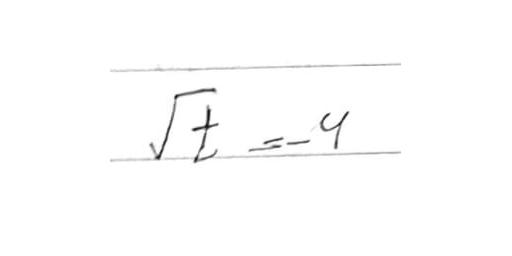 √t = -4